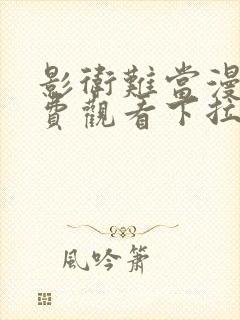 影衛難當漫
費觀看下拉
風吟簫